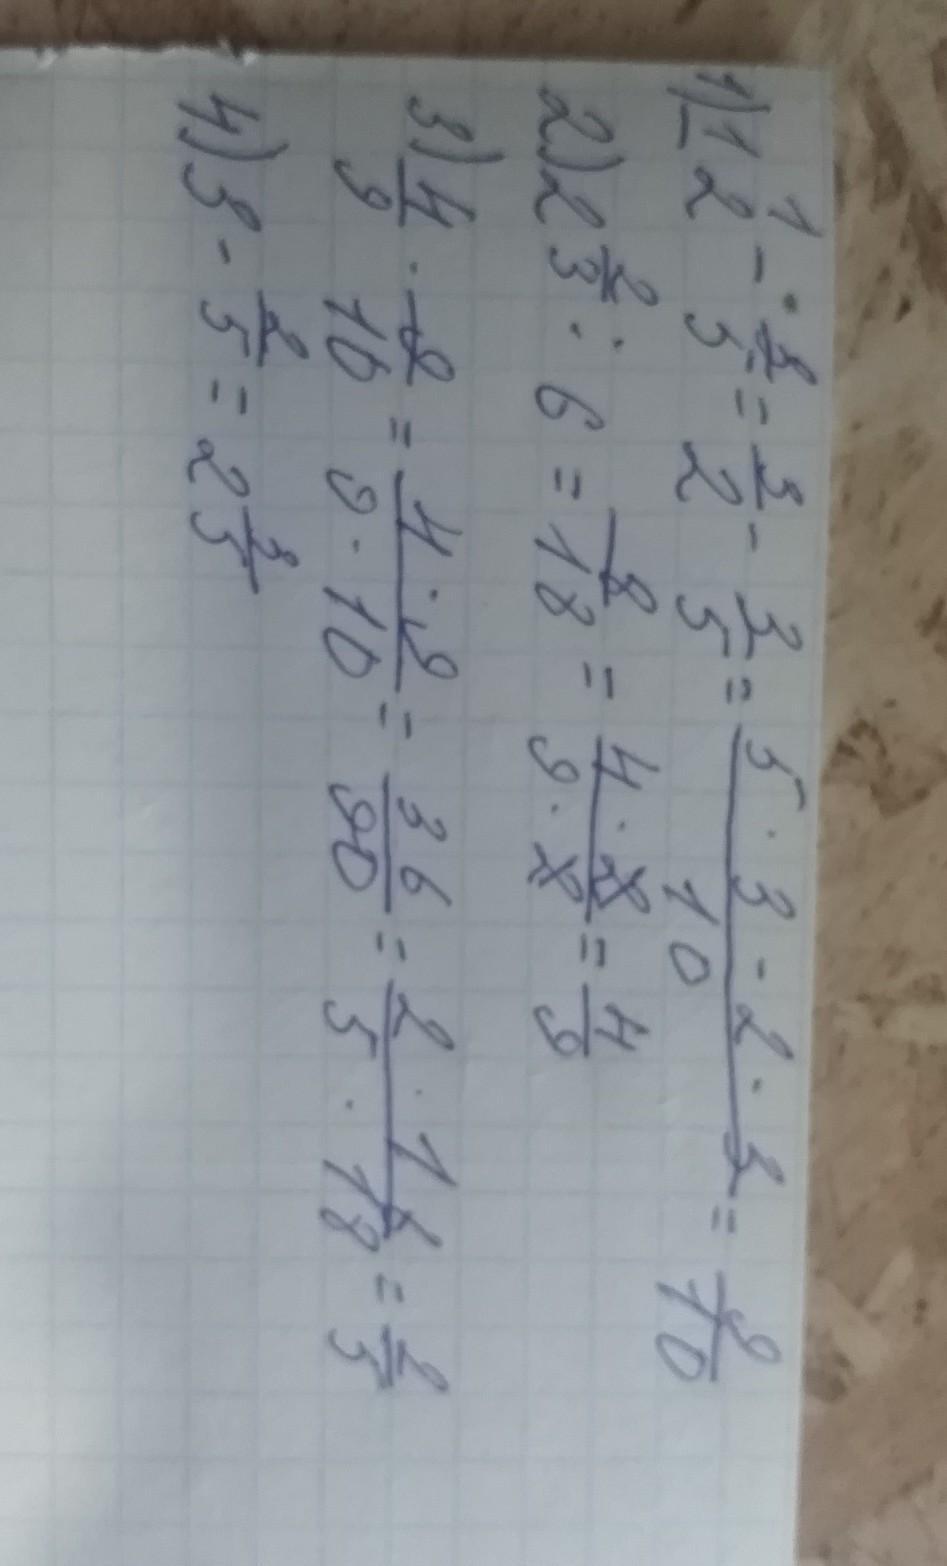 1) 1 1/2 - 3/5 = 3/2 - 3/5 = (5 · 3 - 2 · 3)/10 = 9/10
2) 2 2/3 : 6 = 8/18 = (4 · 2)/(9 · 2) = 4/9
3) 4/9 · 9/10 = (4 · 9)/(9 · 10) = 36/90 = (2 · 18)/(5 · 18) = 2/5
4) 3 - 2/5 = 2 3/5